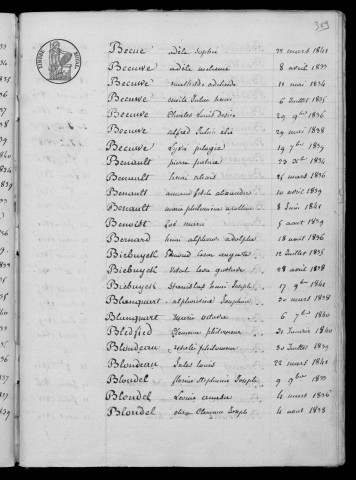 369
TIMBRE ROYAL
Becue adèle Sophie 22 mars 1841
Becuwe adèle mélanie 8 avril 1833
Becuwe mathilde adelaïde 11 mai 1834
Becuwe émile Julien henri 6 Juillet 1835
Becuwe Charles Louis Désiré 29 9bre 1836
Becuwe alfred Julien élie 29 mai 1838
Becuwe Lydie pélagie 19 7bre 1839
Benault pierre 23 8bre 1834
Benault henri aloïs 26 mars 1836
Benault amand fidèle alexandre 10 avril 1839
Benault marie philomène apolline 8 Juin 1841
Benoitt Zoé marie 5 août 1839
Bernard henri alphonse adolphe 18 août 1836
Biebuyck Edmond Léon auguste 12 Juillet 1835
Biebuyck Vital Léon gustave 28 août 1838
Biebuyck Stanislas henri Joseph 17 9bre 1841
Blanquart alphonsine Josephine 20 mars 1838
Blanquart Henri octave 6 7bre 1840
Bledfied Clémence philomène 21 Janvier 1840
Blondeau rosalie philomène 30 Juillet 1839
Blondeau Jules Louis 22 mars 1841
Blondel florine Stéphanie Joseph 9 9bre 1833
Blondel Léonie 4 mars 1836
Blondel elise Clémence Joseph 4 août 1838